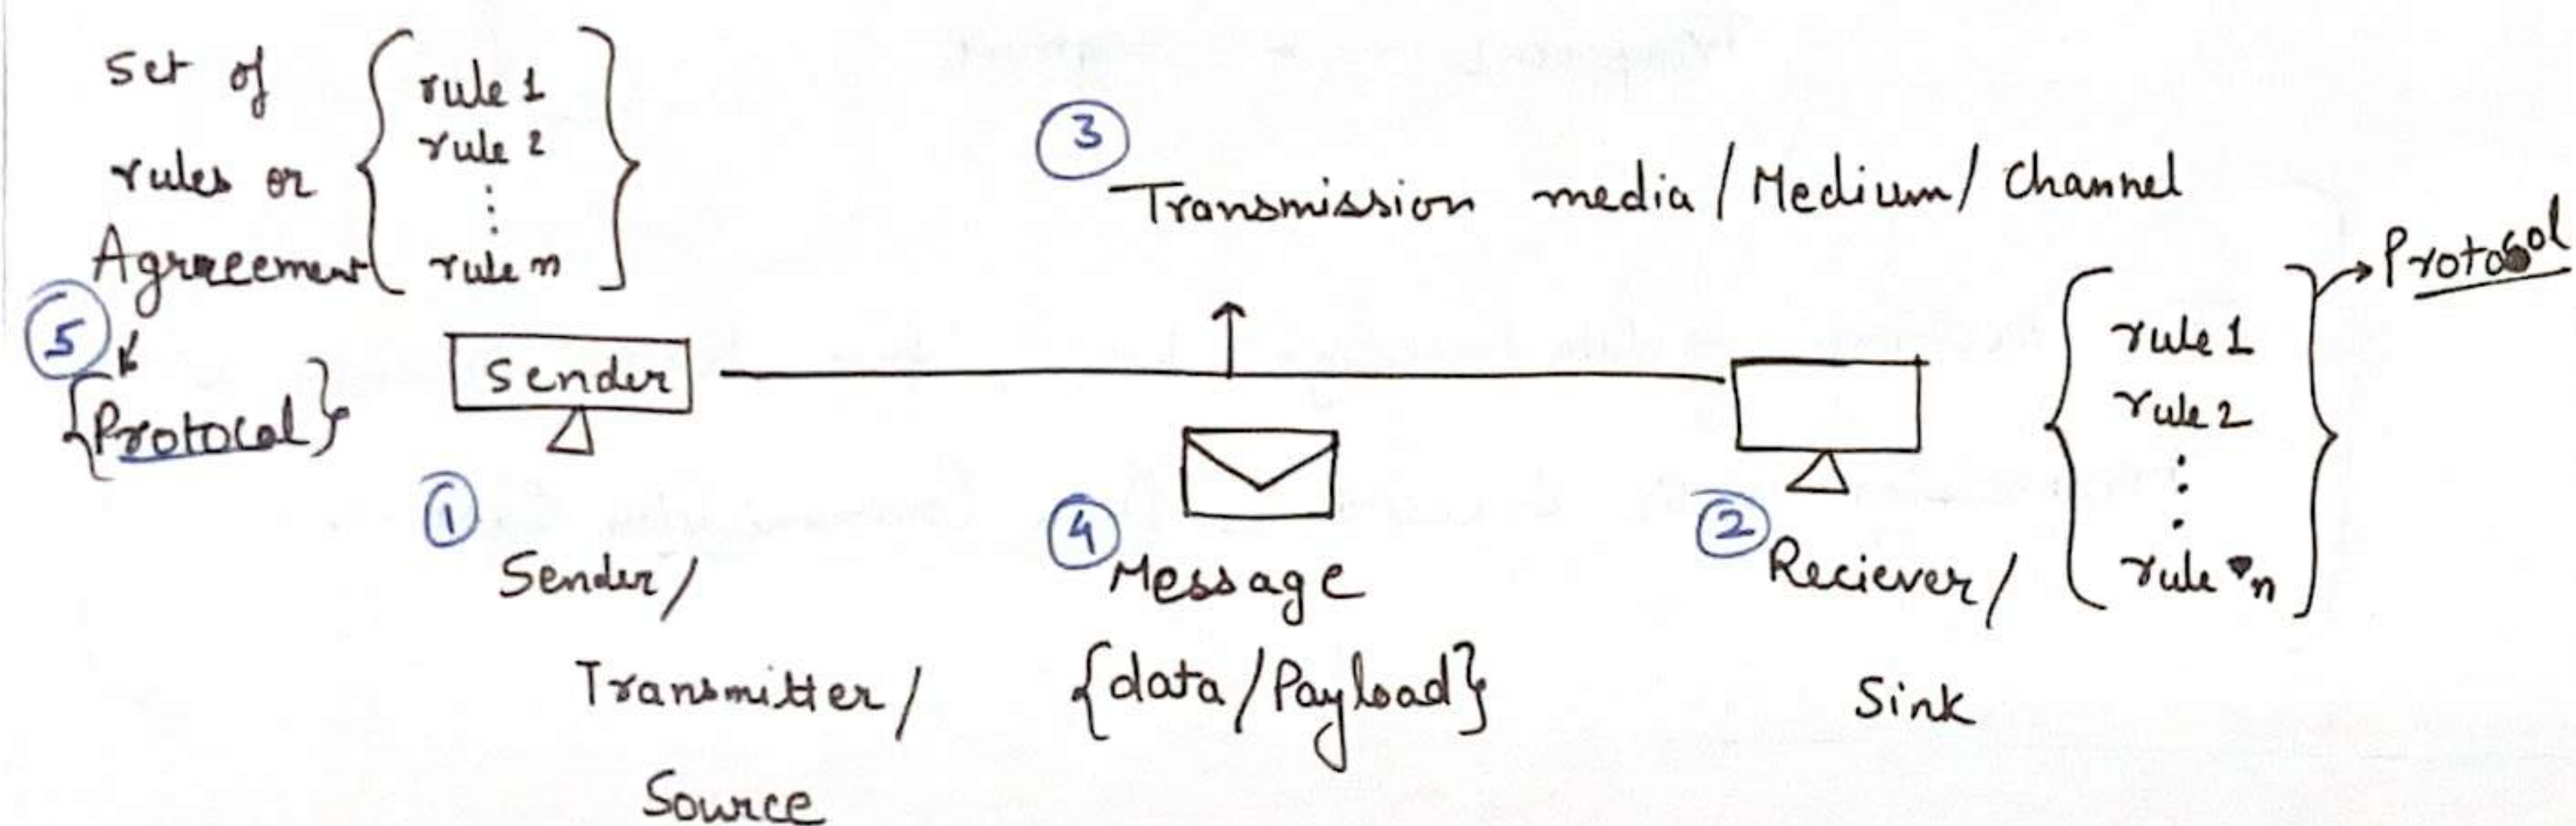 Set of
rules or
Agrreement
{ rule 1
rule 2
⋮
rule n }
⑤
{Protocal}
Sender
①
Sender/
Transmitter/
Source
③
Transmission media / Medium / Channel
④
Message
{data/Payload}
②
Reciever/
Sink
{ rule 1
rule 2
⋮
rule n }
→ Protocol